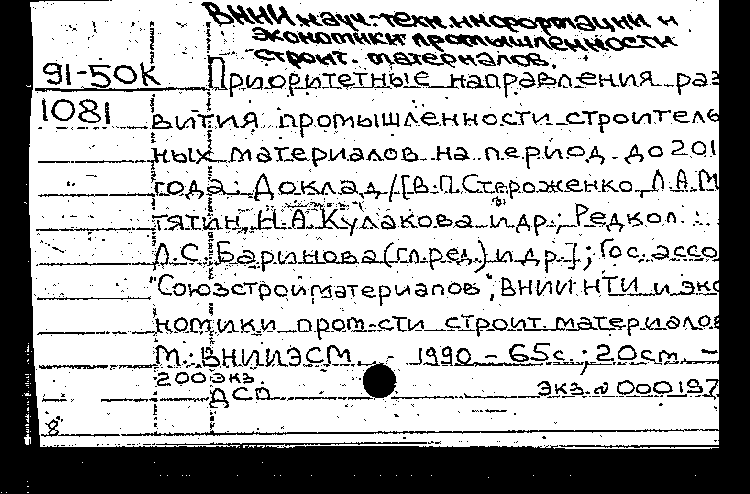 ВНИИ науч.-техн. информации и
экономики промышленности
строит. материалов.
91-50К Приоритетные направления раз
1081 вития промышленности строитель
ных материалов на период до 201
года: Доклад / [В.П. Стороженко, Л.А. М
тятин, Н.А. Кулакова и др.; Редкол.:
Л.С. Баринова (гл.ред.) и др.]; Гос. ассо
"Союзстройматериалов", ВНИИНТИ и эко
номики пром-сти строит. материалов
М.: ВНИИЭСМ. - 1990 - 65с.; 20см. -
200 экз.
ДСП экз. № 000197
8